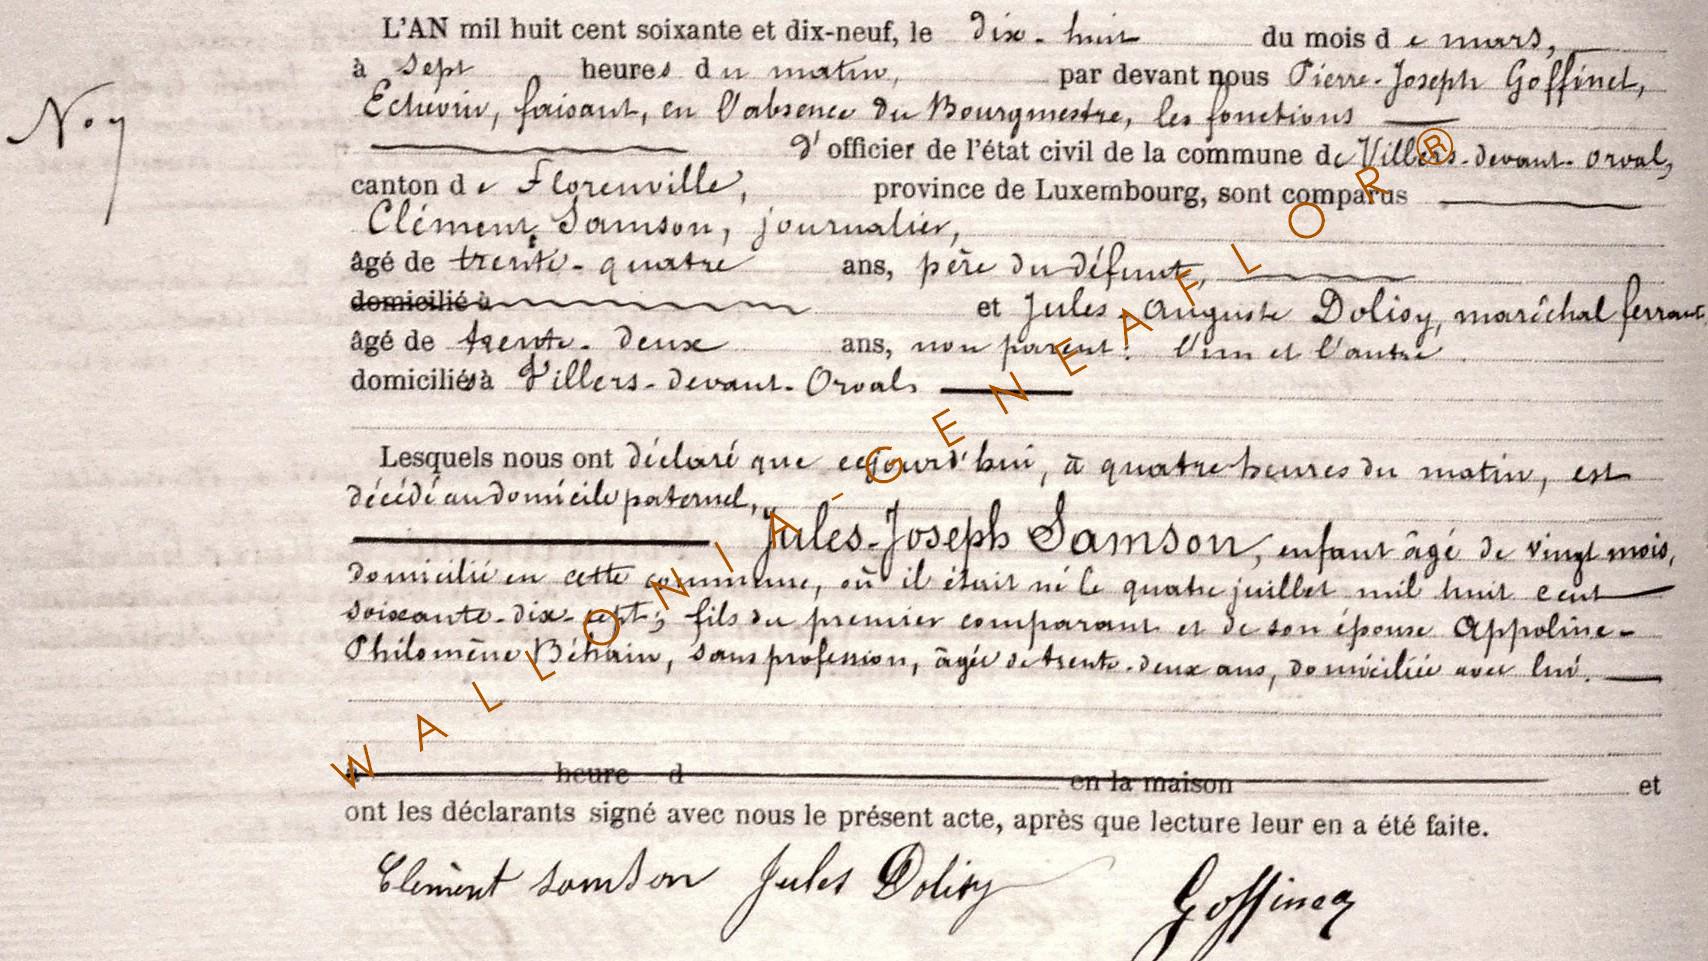 L'AN mil huit cent soixante et dix-neuf, le dix-huit du mois de mars,
à sept heures du matin, par devant nous Pierre-Joseph Goffinet,
Echevin, faisant, en l'absence du Bourgmestre, les fonctions
No 7
d'officier de l'état civil de la commune de Villers-devant-Orval,
canton de Florenville, province de Luxembourg, sont comparus
Clément Samson, journalier,
âgé de trente-quatre ans, père du défunt,
domicilié à et Jules Auguste Dolisy, maréchal ferrant,
âgé de trente-deux ans, non parent: l'un et l'autre
domiciliés à Villers-devant-Orval.
Lesquels nous ont déclaré que cejourd'hui, à quatre heures du matin, est
décédé au domicile paternel,
Jules-Joseph Samson, enfant âgé de vingt mois,
domicilié en cette commune, où il était né le quatre juillet mil huit cent
soixante-dix-sept; fils du premier comparant et de son épouse Appoline-
Philomène, sans profession, âgée de trente-deux ans, domiciliée avec lui.
à heure d en la maison et
ont les déclarants signé avec nous le présent acte, après que lecture leur en a été faite.
Clément Samson Jules Dolisy
WALLONIA-GENEAFLOR®